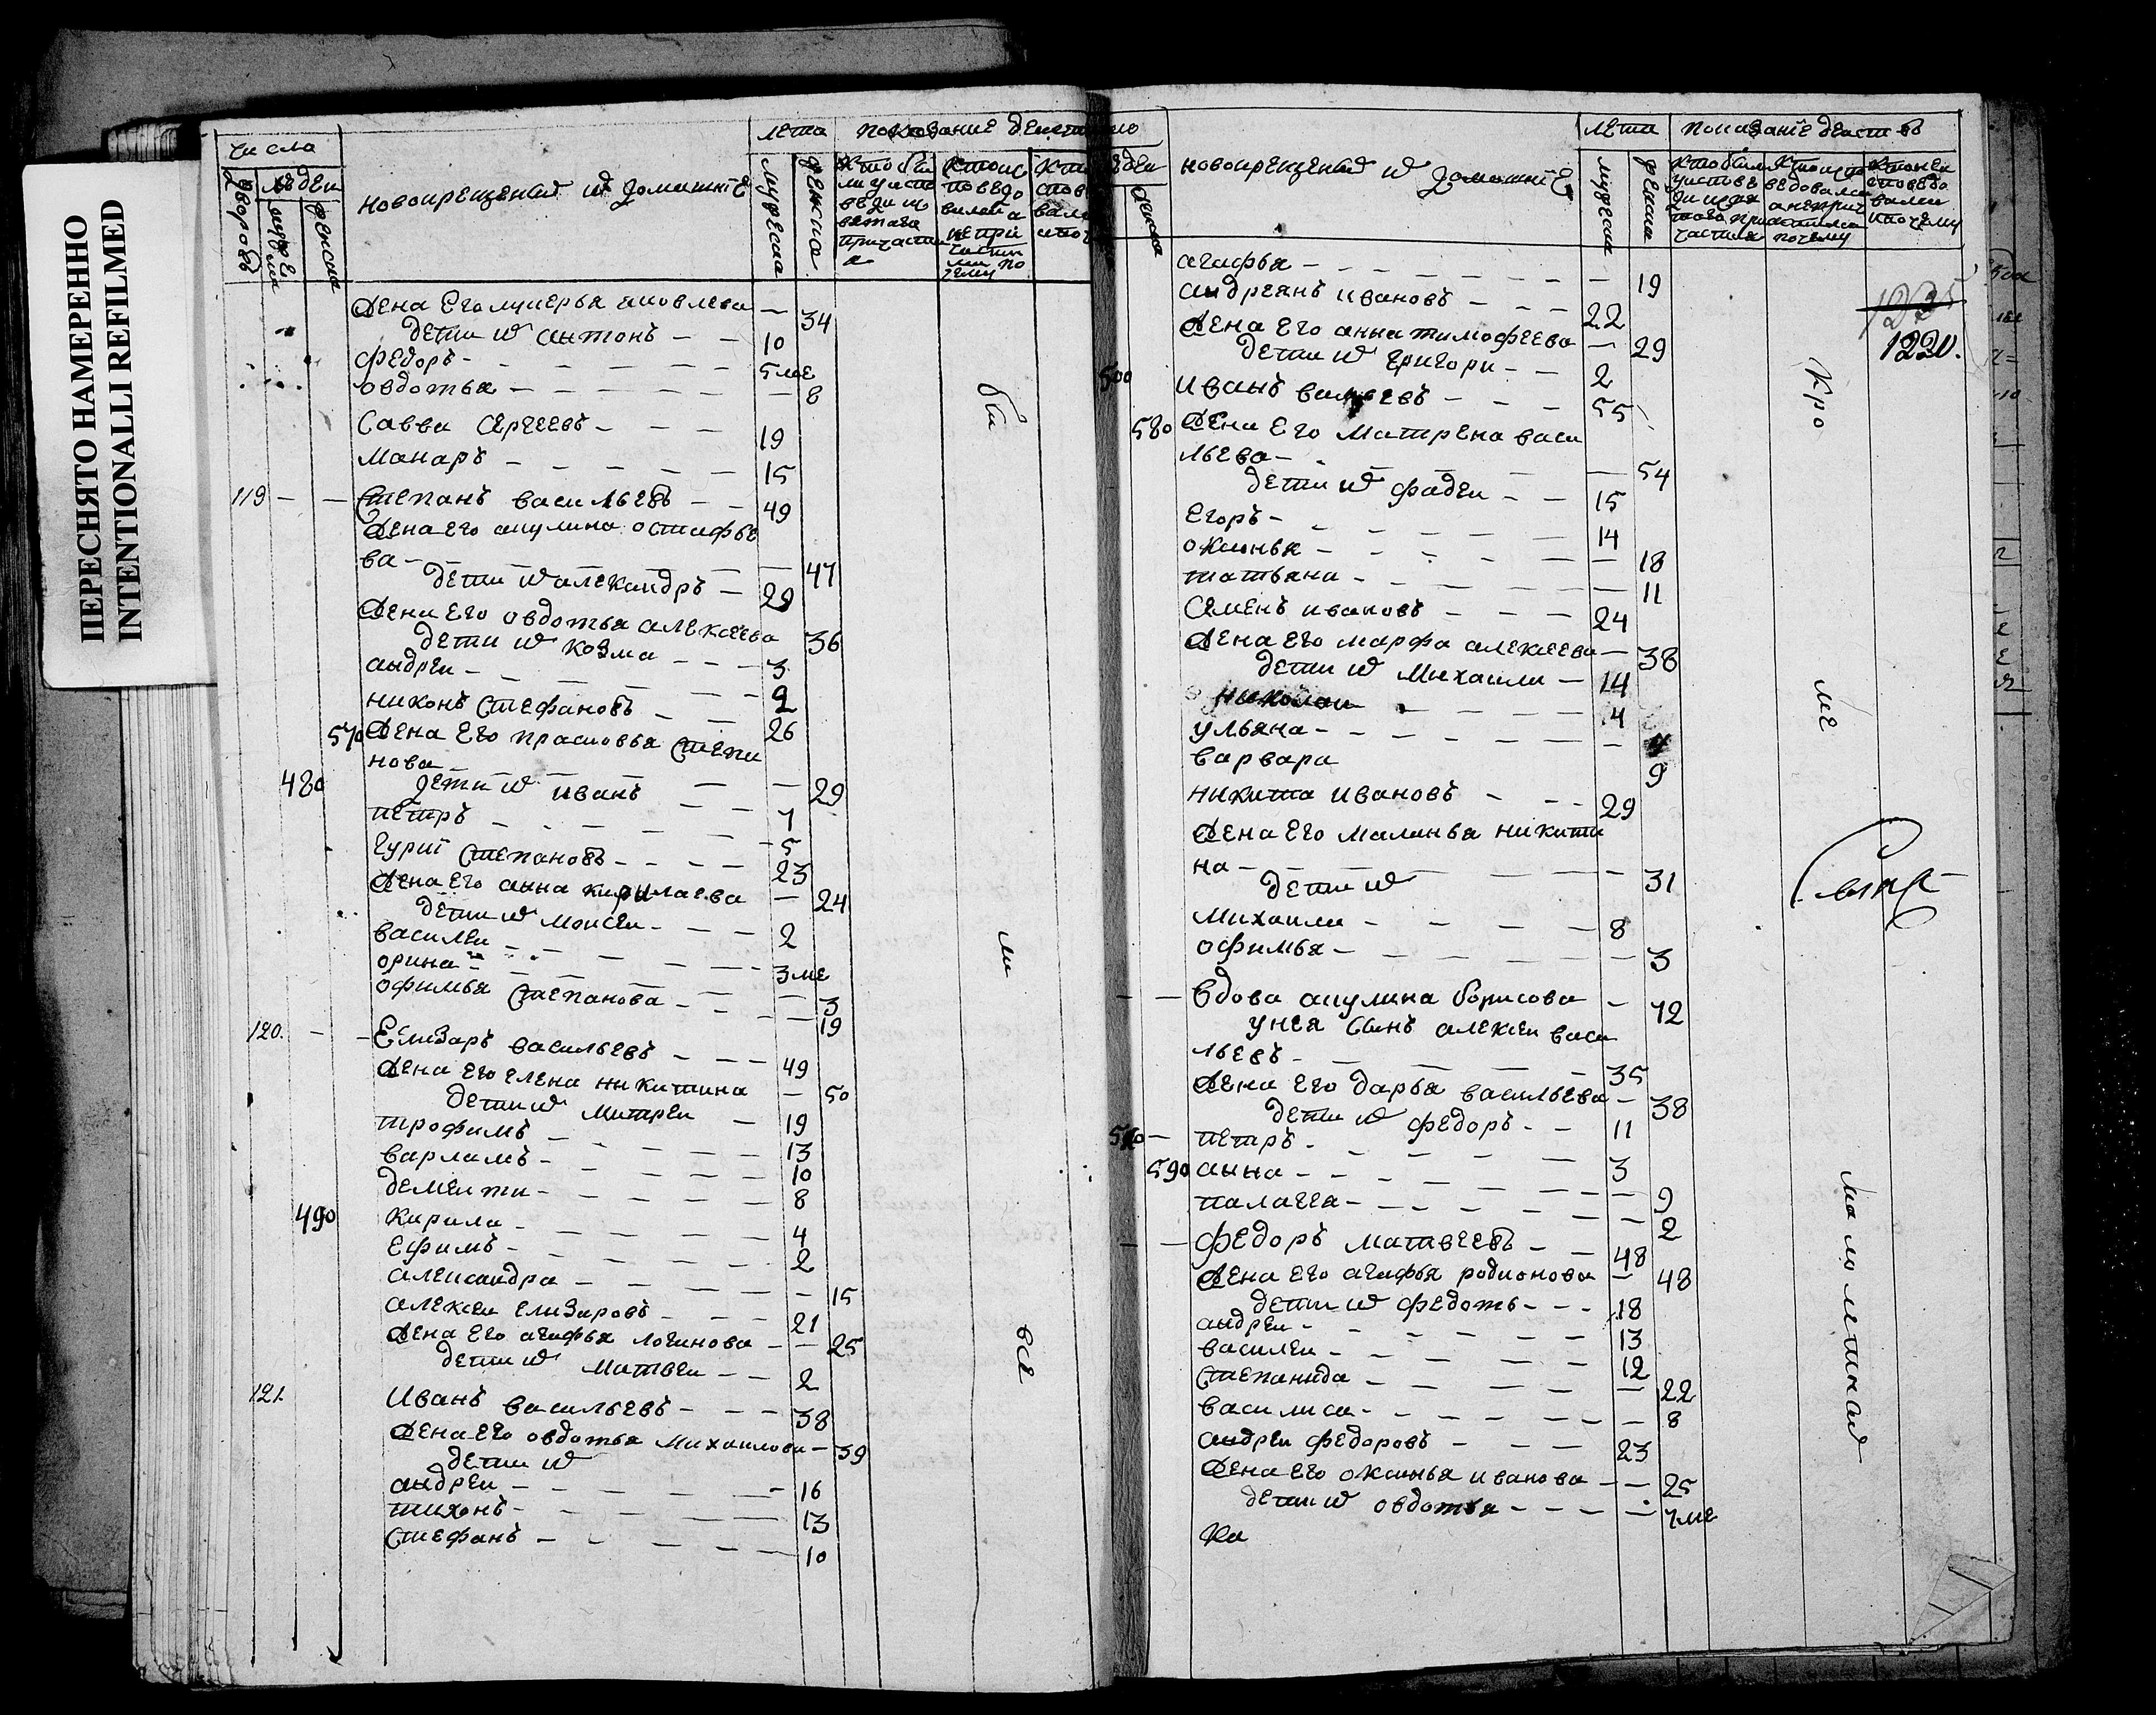 ПЕРЕСНЯТО НАМЕРЕННО
INTENTIONALLI REFILMED
числа
людеи
дворовъ
мужеска
женска
новокрещеныя и домашние
лета
мужеска
женска
показание деиствъ
жена его лукерья яковлева — 34
дети их антонъ — 10
федоръ — 5 ме
овдотья — 8
Савва Сергеевъ — 19
макаръ — 15
119 — Степанъ васильевъ — 49
жена его акулина остафье
ва — 47
дети их александръ — 29
жена его овдотья алексеева 36
дети их козма — 3
андреи — 2
никонъ Стефановъ — 26
570 жена его прасковья Степа
нова — 29
480 дети их иванъ — 7
петръ — 5
гурии Степановъ — 23
жена его анна кирилаева — 24
дети их моисеи — 2
василеи — 3 ме
орина — 3
офимья Степанова — 19
120. — Елизаръ васильевъ — 49
жена его елена никитина — 50
дети их митреи — 19
трофимъ — 13
варламъ — 10
дементи — 8
490 кирила — 4
ефимъ — 2
александра — 15
алексеи елизаровъ — 21
жена его агафья логинова — 25
дети их матвеи — 2
121. Иванъ васильевъ — 38
жена его овдотья михаилова — 39
дети их
андреи — 16
тихонъ — 13
Стефанъ — 10
бы
ли
все
новокрещеныя и домашние
лета
мужеска
женска
показание деиствъ
агафья — 19
андреянъ ивановъ — 22
жена его анна тимофеева — 29
дети их григори — 2
500 иванъ васильевъ — 55
580 жена его матрена васи
льева — 54
дети их фадеи — 15
егоръ — 14
оксинья — 18
татьяна — 11
Семенъ ивановъ — 24
жена его марфа алексеева — 38
дети их михаили — 14
николаи — 4
ульяна —
варвара 9
никита ивановъ — 29
жена его маланья никити
на — 31
дети их
михаили — 8
офимья — 3
вдова акулина борисова — 72
у нея сынъ алексеи васи
льевъ — 35
жена его дарья васильева — 38
дети их федоръ — 11
петръ — 3
590 анна — 9
палагея — 2
федоръ матвеевъ — 48
жена его агафья родионова — 48
дети их федотъ — 18
андреи — 13
василеи — 12
Степанида — 22
василиса — 8
андреи федоровъ — 23
жена его оксинья иванова — 25
дети их овдотья — 7 ме
1220.
Кро
ме
малолетныхъ